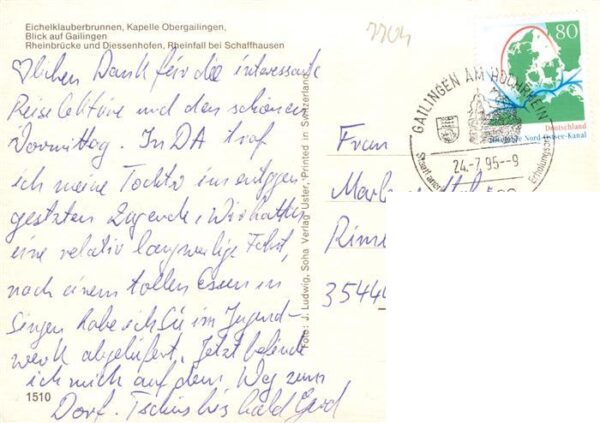 Eichelklauberbrunnen, Kapelle Obergailingen,
Blick auf Gailingen
Rheinbrücke und Diessenhofen, Rheinfall bei Schaffhausen
♡lichen Dank für die interessante
Reiselektüre und den schönen
Vormittag. In DA traf
ich meine Tochter im entgegen
gesetzten Zug ende, Wir hatten
eine relativ langweilige Fahrt,
nach einem tollen Essen in
Singen habe ich Sie im Jugend-
werk abgeliefert. Jetzt befinde
ich mich auf dem Weg zum
Dorf. Tschüs bis bald Gerd
1510
Foto: J. Ludwig, Soha Verlag Uster, Printed in Switzerland
7704
GAILINGEN AM HOCHRHEIN
24.-7.95--9
Staatl. aner
Erholungsort
80
Deutschland
Nord-Ostsee-Kanal
Frau
35444